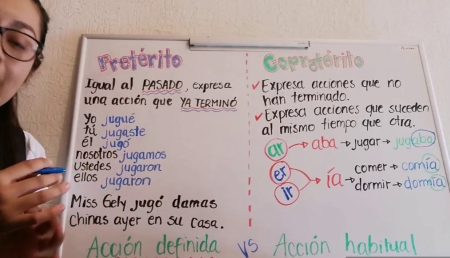 Pretérito
Igual al PASADO, expresa
una acción que YA TERMINÓ
yo jugué
tú jugaste
él jugó
nosotros jugamos
ustedes jugaron
ellos jugaron
Miss Gely jugó damas
chinas ayer en su casa.
Acción definida
vs
Copretérito
✓Expresa acciones que no
han terminado.
✓Expresa acciones que suceden
al mismo tiempo que otra.
ar → aba → jugar → jugaba
er
ir
→ ía
comer → comía
dormir → dormía
Acción habitual